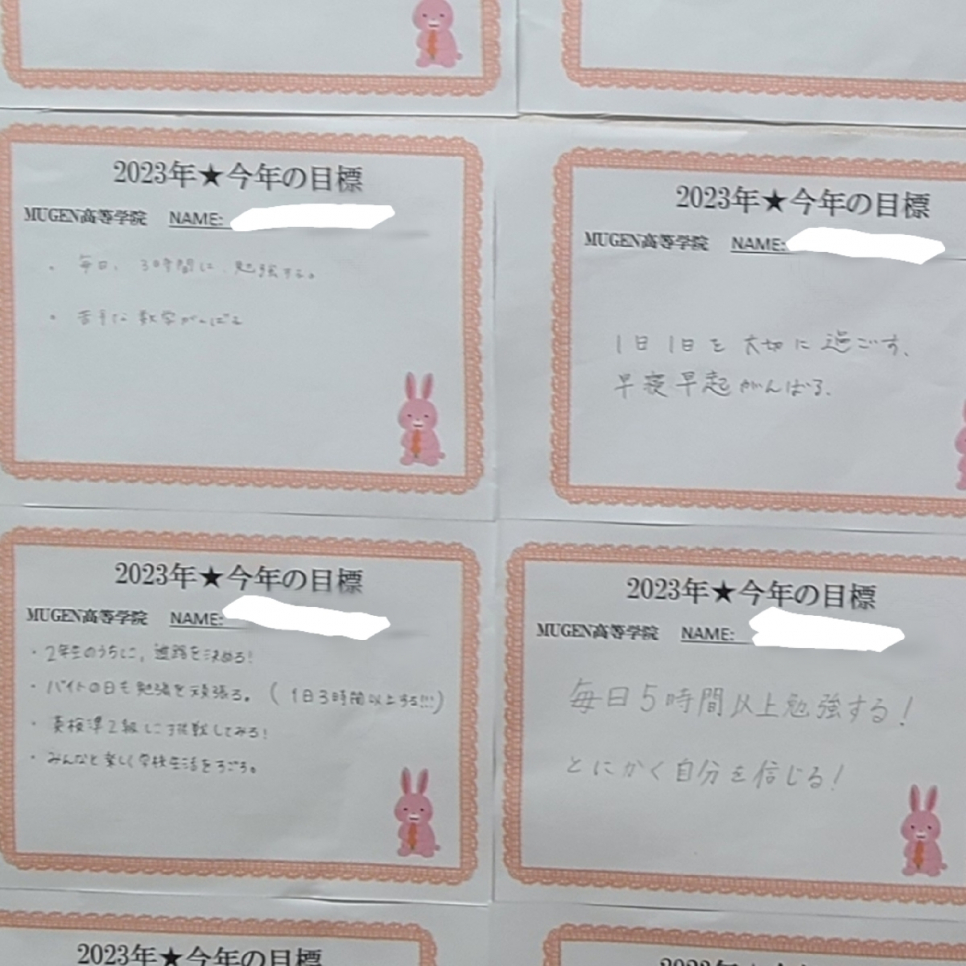 2023年★今年の目標
MUGEN高等学院 NAME:
・毎日、3時間に勉強する。
・苦手な数学がんばる
2023年★今年の目標
MUGEN高等学院 NAME:
1日1日を大切に過ごす。
早寝早起がんばる。
2023年★今年の目標
MUGEN高等学院 NAME:
・2年生のうちに、進路を決める!
・バイトの日も勉強を頑張る。(1日3時間以上する!!!)
・英検準2級に挑戦してみる!
・みんなと楽しく学校生活をすごす。
2023年★今年の目標
MUGEN高等学院 NAME:
毎日5時間以上勉強する!
とにかく自分を信じる!
2023年★今年の目標
2023年★今年の目標